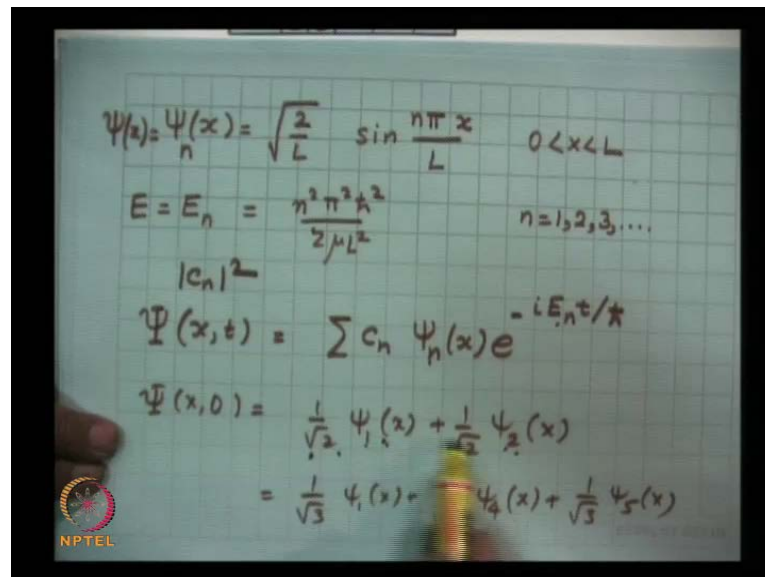 Ψ(x) = Ψn(x) = √(2/L) sin nπx/L 0 < x < L
E = En = n²π²ħ²/2μL² n = 1, 2, 3, ....
|cn|²
Ψ(x,t) = ∑ cn Ψn(x) e^-iEnt/ħ
Ψ(x,0) = 1/√2 Ψ1(x) + 1/√2 Ψ2(x)
= 1/√3 Ψ1(x) + Ψ4(x) + 1/√3 Ψ5(x)
NPTEL